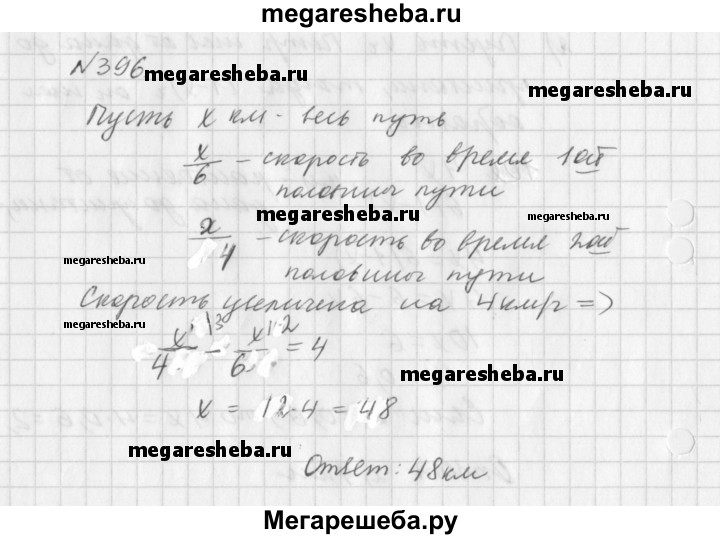 megaresheba.ru
№396
megaresheba.ru
megaresheba.ru
Пусть x км - весь путь
x/6 - скорость во время 1ой
половины пути
megaresheba.ru
megaresheba.ru
x/4 - скорость во время 2ой
половины пути
megaresheba.ru
Скорость увеличена на 4 км/г =>
megaresheba.ru
x\3/4 - x\·2/6 = 4
megaresheba.ru
x = 12·4 = 48
megaresheba.ru
Ответ: 48 км
Мегарешеба.ру